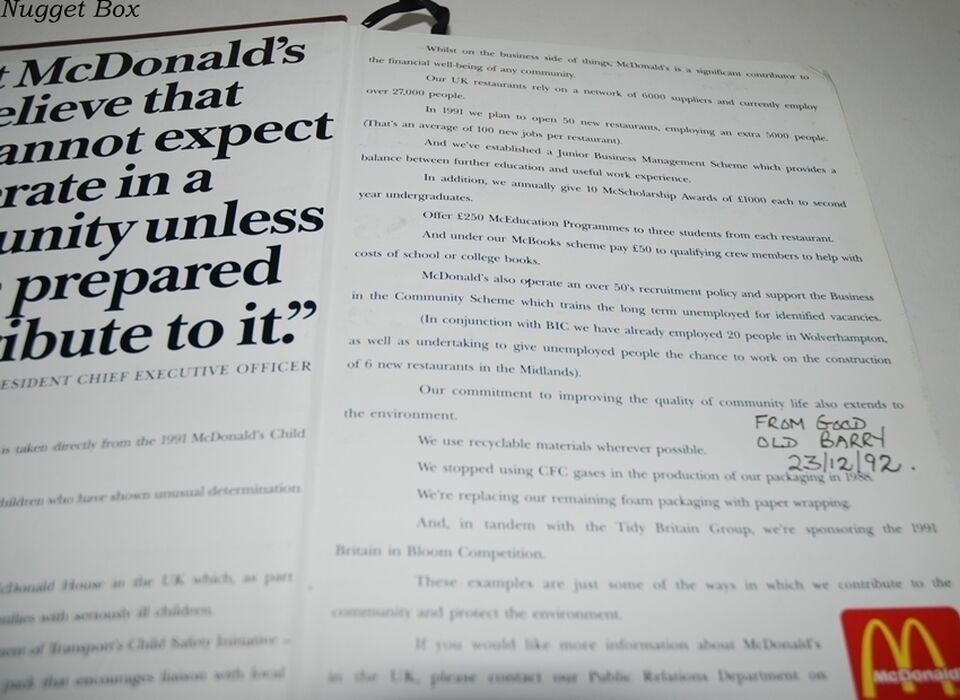 Nugget Box
t McDonald's
elieve that
annot expect
rate in a
unity unless
prepared
ribute to it.”
ESIDENT CHIEF EXECUTIVE OFFICER
is taken directly from the 1991 McDonald's Child
hildren who have shown unusual determination
cDonald House in the UK which, as part
milies with seriously ill children.
ment of Transport's Child Safety Initiative –
pack that encourages liaison with local
Whilst on the business side of things, McDonald's is a significant contributor to
the financial well-being of any community.
Our UK restaurants rely on a network of 6000 suppliers and currently employ
over 27,000 people.
In 1991 we plan to open 50 new restaurants, employing an extra 5000 people.
(That's an average of 100 new jobs per restaurant).
And we've established a Junior Business Management Scheme which provides a
balance between further education and useful work experience.
In addition, we annually give 10 McScholarship Awards of £1000 each to second
year undergraduates.
Offer £250 McEducation Programmes to three students from each restaurant.
And under our McBooks scheme pay £50 to qualifying crew members to help with
costs of school or college books.
McDonald's also operate an over 50's recruitment policy and support the Business
in the Community Scheme which trains the long term unemployed for identified vacancies.
(In conjunction with BIC we have already employed 20 people in Wolverhampton,
as well as undertaking to give unemployed people the chance to work on the construction
of 6 new restaurants in the Midlands).
Our commitment to improving the quality of community life also extends to
the environment.
We use recyclable materials wherever possible.
We stopped using CFC gases in the production of our packaging in 1988.
We're replacing our remaining foam packaging with paper wrapping.
And, in tandem with the Tidy Britain Group, we're sponsoring the 1991
Britain in Bloom Competition.
These examples are just some of the ways in which we contribute to the
community and protect the environment.
If you would like more information about McDonald's
in the UK, please contact our Public Relations Department on
FROM GOOD
OLD BARRY
23/12/92.
McDonald's